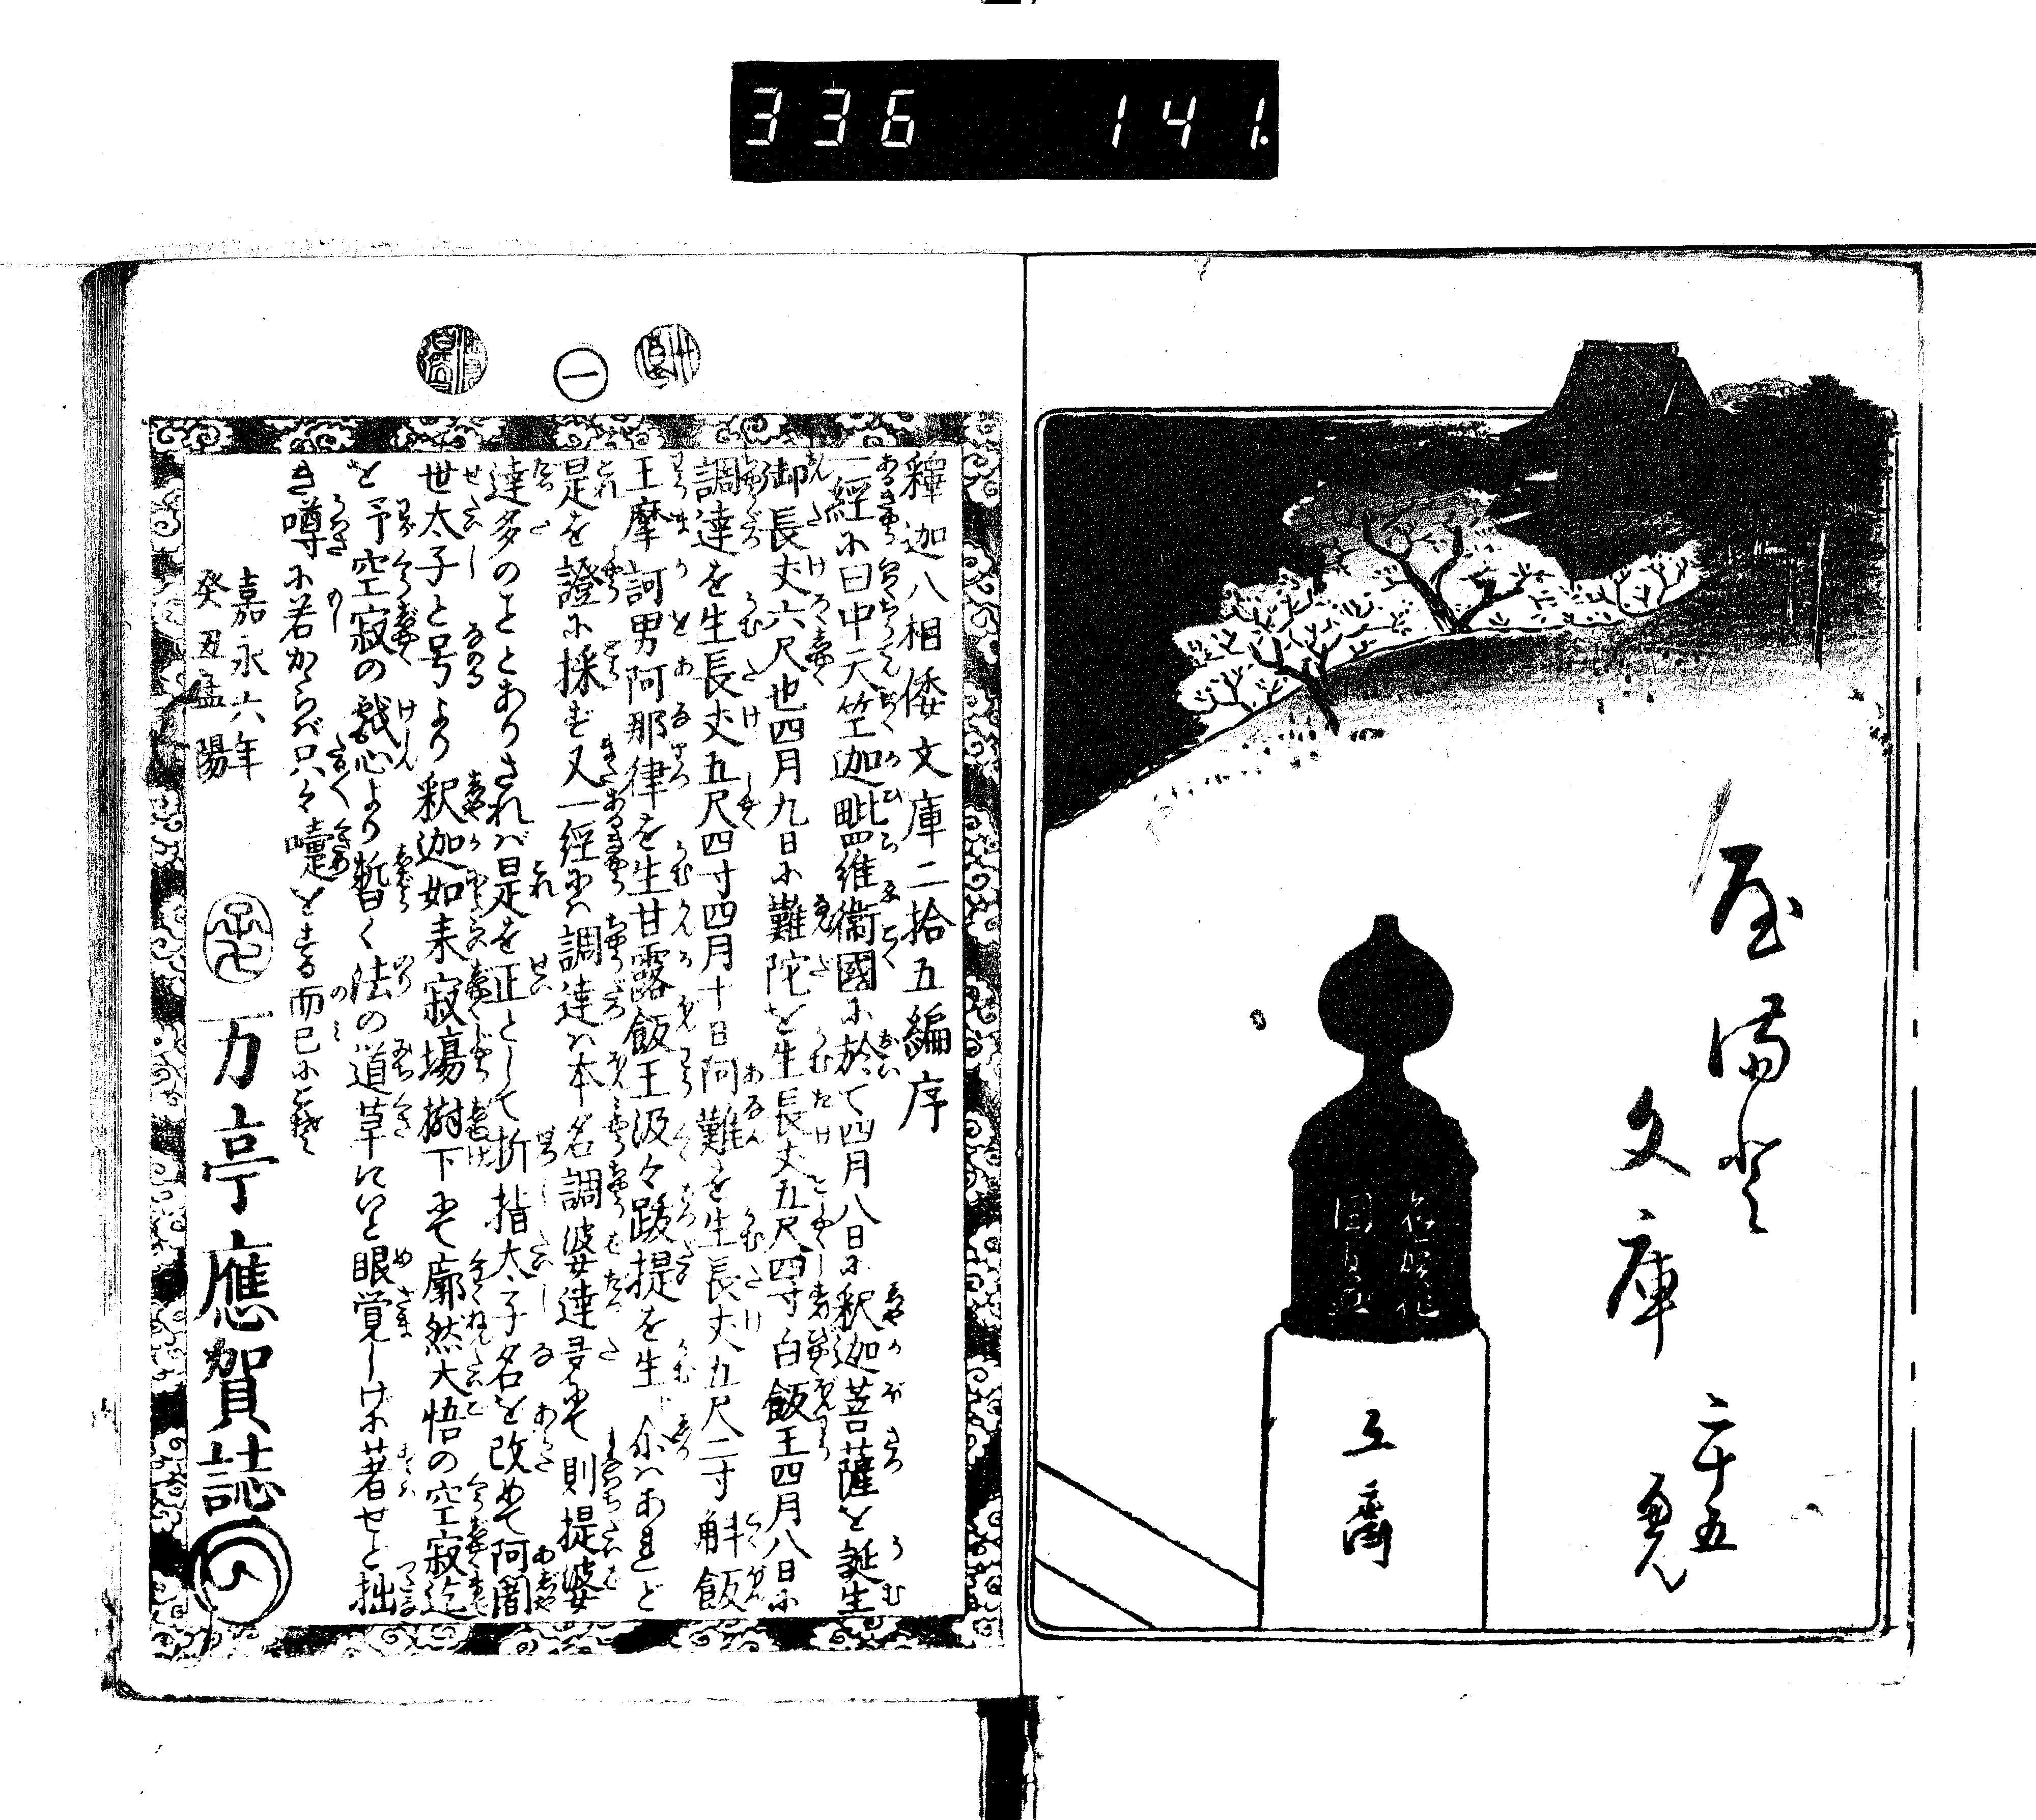 336 141
屋満登
文庫
二十五
編
玄齋
一
釋迦八相倭文庫二拾五編序
一經に曰中天竺迦毗羅衞國に於て四月八日に釈迦菩薩を誕生
御長丈六尺也四月九日に難陀を生長丈五尺四寸白飯王四月八日に
調達を生長丈五尺四寸四月十日阿難を生長丈五尺二寸斛飯
王摩訶男阿那律を生甘露飯王汲々跋提を生尓はあれど
是を證に採ず又一經には調達は本名調婆達多にて則提婆
達多のことゝありされバ是を正として折指太子名を改めて阿闍
世太子と号より釈迦如来寂場樹下にて廓然大悟の空寂迄
を予空寂の戯心より暫く法の道草にいと眼覚しけに著せと拙
き噂に若からバ只々嚔をする而已にこそ
嘉永六年
癸丑孟陽
万亭應賀誌